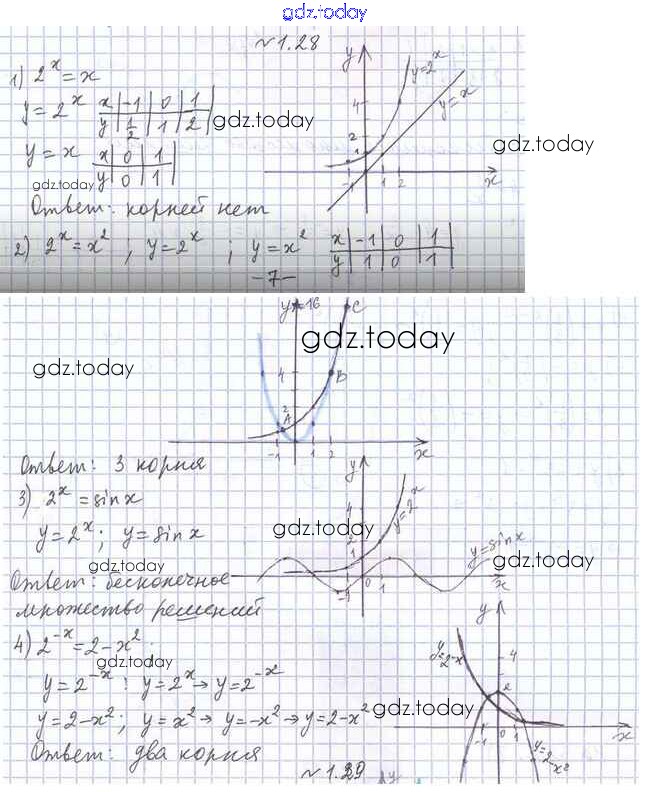 gdz.today
№1.28
1) 2^x = x
y = 2^x x | -1 | 0 | 1 |
y | 1/2 | 1 | 2 |
gdz.today
gdz.today
y = x x | 0 | 1 |
y | 0 | 1 |
gdz.today
Ответ: корней нет
y
y=2^x
y=x
4
2
1
-1 1 2 x
2) 2^x = x^2 ; y = 2^x ; y = x^2 x | -1 | 0 | 1 |
y | 1 | 0 | 1 |
-7-
y 16 C
gdz.today
gdz.today
4 B
2
A
-1 1 2 x
Ответ: 3 корня
3) 2^x = sin x
y = 2^x ; y = sin x
gdz.today
gdz.today
Ответ: бесконечное
множество решений
y
4
2
1
-1
0 1
y=2^x
y=sin x
gdz.today
x
4) 2^-x = 2-x^2
gdz.today
y = 2^-x : y = 2^x → y = 2^-x
y = 2-x^2 ; y = x^2 → y = -x^2 → y = 2-x^2
gdz.today
Ответ: два корня
y
y=2-x
4
2
-1 0 1 x
y=2-x^2
№1.29